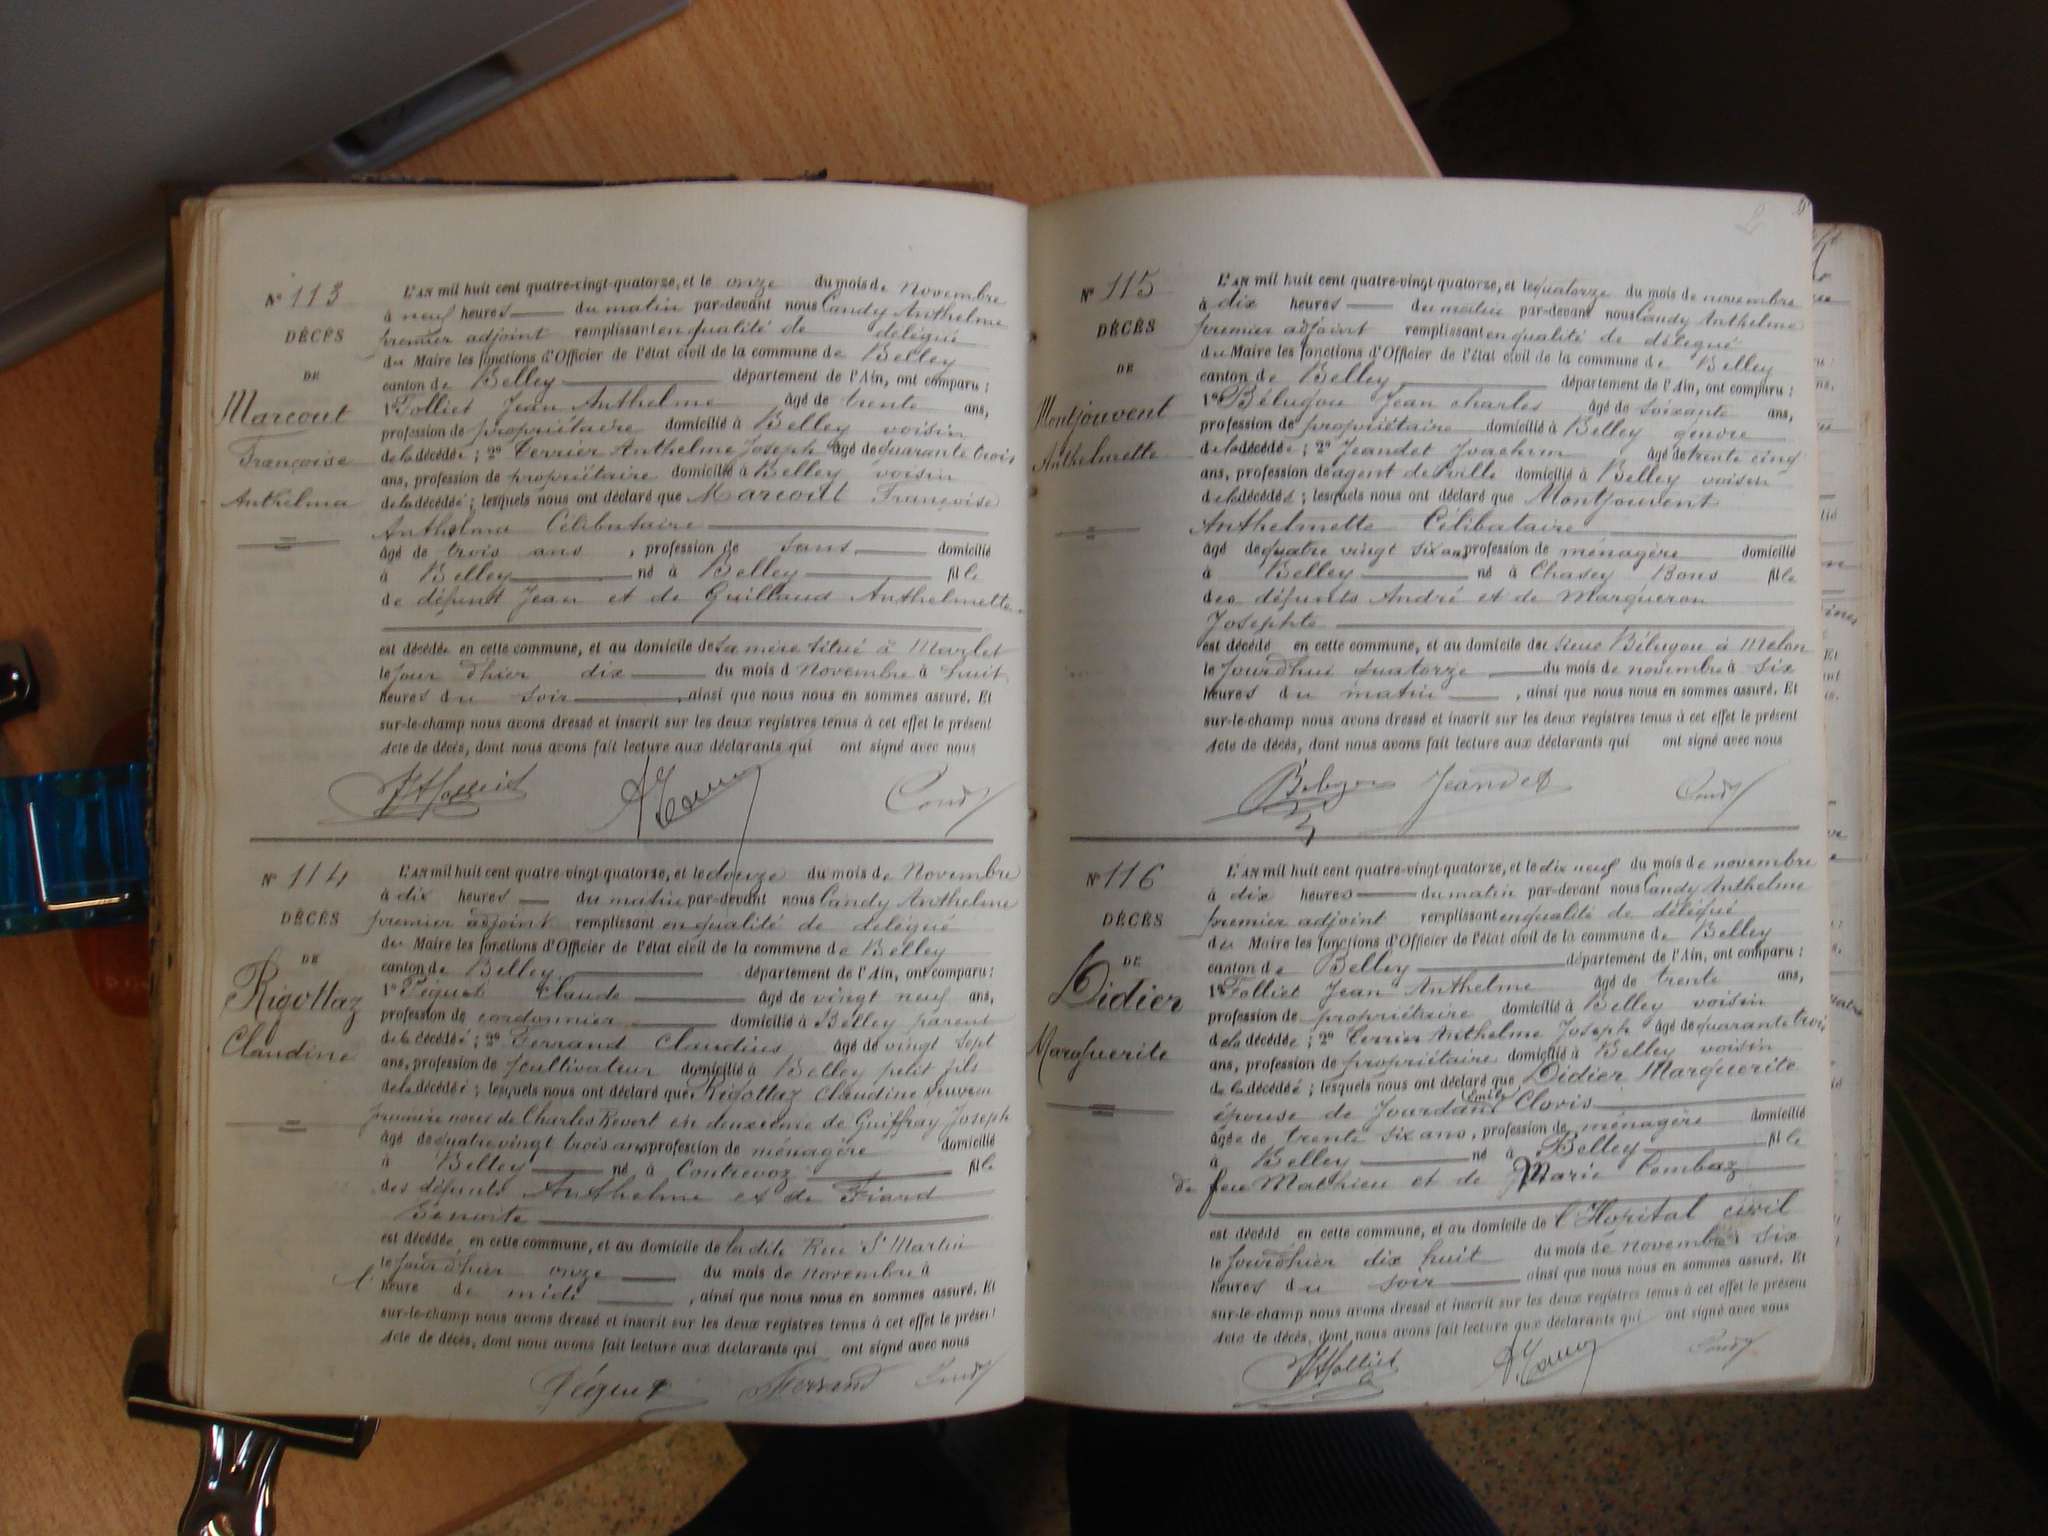 N° 113
DÉCÈS
DE
Marcout
Françoise
Anthelma
L'AN mil huit cent quatre-vingt-quatorze, et le onze du mois de Novembre
à neuf heures du matin par-devant nous Candy Anthelme
premier adjoint remplissant en qualité de délégué
du Maire les fonctions d'Officier de l'état civil de la commune de Belley
canton de Belley département de l'Ain, ont comparu :
1° Folliet Jean Anthelme âgé de trente ans,
profession de propriétaire domicilié à Belley voisin
de la décédée ; 2° Terrier Anthelme Joseph âgé de quarante trois
ans, profession de propriétaire domicilié à Belley voisin
de la décédée ; lesquels nous ont déclaré que Marcout Françoise
Anthelma Célibataire
âgé de trois ans , profession de sans domicilié
à Belley né à Belley fille
de défunt Jean et de Guillaud Anthelmette
est décédée en cette commune, et au domicile de sa mère situé à
le jour d'hier dix du mois d Novembre à huit
heures du soir , ainsi que nous nous en sommes assuré. Et
sur-le-champ nous avons dressé et inscrit sur les deux registres tenus à cet effet le présent
Acte de décès, dont nous avons fait lecture aux déclarants qui ont signé avec nous
JA Folliet Candy
N° 114
DÉCÈS
DE
Rigottaz
Claudine
L'AN mil huit cent quatre-vingt-quatorze, et le douze du mois de Novembre
à dix heures du matin par-devant nous Candy Anthelme
premier adjoint remplissant en qualité de délégué
du Maire les fonctions d'Officier de l'état civil de la commune de Belley
canton de Belley département de l'Ain, ont comparu :
1° Péguet Claude âgé de vingt neuf ans,
profession de cordonnier domicilié à Belley parent
de la décédé ; 2° Ferrand Claudius âgé de vingt sept
ans, profession de cultivateur domicilié à Belley petit fils
de la décédé ; lesquels nous ont déclaré que Rigottaz Claudine veuve en
première noces de Charles Revert en deuxième de Guiffray Joseph
âgé de quatre vingt trois ans profession de ménagère domicilié
à Belley né à Contrevoz fille
des défunts Anthelme et de Fiard
Benoite
est décédée en cette commune, et au domicile de la dite Rue St Martin
le jour d'hier onze du mois de novembre à
l'heure de midi , ainsi que nous nous en sommes assuré. Et
sur-le-champ nous avons dressé et inscrit sur les deux registres tenus à cet effet le présent
Acte de décès, dont nous avons fait lecture aux déclarants qui ont signé avec nous
Péguet Ferrand Candy
N° 115
DÉCÈS
DE
Montjouvent
Anthelmette
L'AN mil huit cent quatre-vingt-quatorze, et le quatorze du mois de novembre
à dix heures du matin par-devant nous Candy Anthelme
premier adjoint remplissant en qualité de délégué
du Maire les fonctions d'Officier de l'état civil de la commune de Belley
canton de Belley département de l'Ain, ont comparu :
1° Bélugou Jean Charles âgé de soixante ans,
profession de propriétaire domicilié à Belley gendre
de la décédée ; 2° Jeandet Joachim âgé de trente cinq
ans, profession de agent de ville domicilié à Belley voisin
de la décédée ; lesquels nous ont déclaré que Montjouvent
Anthelmette Célibataire
âgé de quatre vingt six ans profession de ménagère domicilié
à Belley né à Chasey Bons fille
des défunts André et de Margueron
Josephte
est décédé en cette commune, et au domicile du sieur Bélugou à Melon
le jourd'hui quatorze du mois de novembre à six
heures du matin , ainsi que nous nous en sommes assuré. Et
sur-le-champ nous avons dressé et inscrit sur les deux registres tenus à cet effet le présent
Acte de décès, dont nous avons fait lecture aux déclarants qui ont signé avec nous
Jeandet Candy
N° 116
DÉCÈS
DE
Didier
Marguerite
L'AN mil huit cent quatre-vingt-quatorze, et le dix neuf du mois de novembre
à dix heures du matin par-devant nous Candy Anthelme
premier adjoint remplissant en qualité de délégué
du Maire les fonctions d'Officier de l'état civil de la commune de Belley
canton de Belley département de l'Ain, ont comparu :
1° Folliet Jean Anthelme âgé de trente ans,
profession de propriétaire domicilié à Belley voisin
de la décédée ; 2° Terrier Anthelme Joseph âgé de quarante trois
ans, profession de propriétaire domicilié à Belley voisin
de la décédé ; lesquels nous ont déclaré que Didier Marguerite
épouse de Jourdan Emile Clovis
âgée de trente six ans, profession de ménagère domicilié
à Belley né à Belley fille
de feu Mathieu et de Marie Combaz
est décédé en cette commune, et au domicile de l'Hopital civil
le jourd'hier dix huit du mois de novembre à six
heures du soir ainsi que nous nous en sommes assuré. Et
sur-le-champ nous avons dressé et inscrit sur les deux registres tenus à cet effet le présent
Acte de décès, dont nous avons fait lecture aux déclarants qui ont signé avec nous
JA Folliet Candy